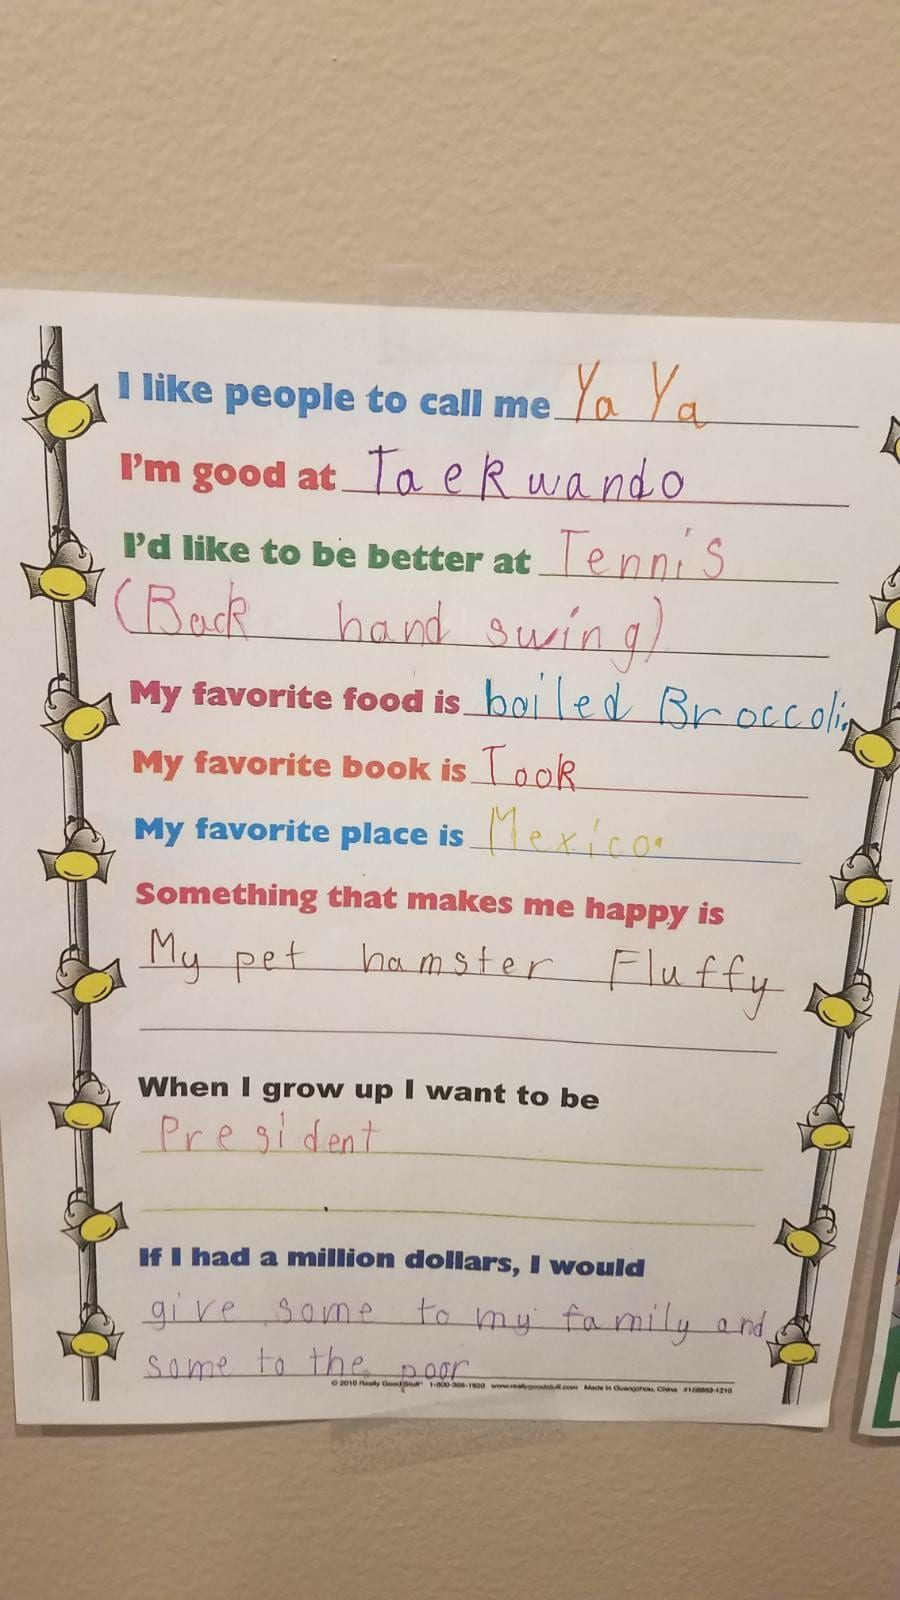 I like people to call me Ya Ya
I'm good at Taekwando
I'd like to be better at Tennis
(Back hand swing)
My favorite food is boiled Broccoli.
My favorite book is Took
My favorite place is Mexico.
Something that makes me happy is
My pet hamster Fluffy
When I grow up I want to be
President
If I had a million dollars, I would
give some to my family and
some to the poor
© 2010 Really Good Stuff® 1-800-366-1920 www.reallygoodstuff.com Made in Guangzhou, China